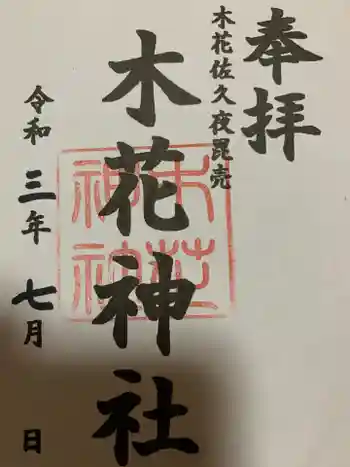 奉拝
木花佐久夜毘売
木花神社
令和三年七月 日